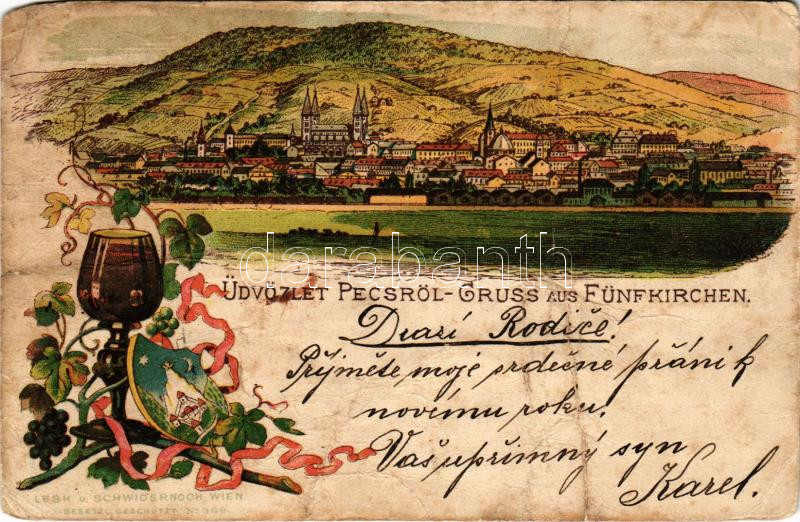 darabanth
ÜDVÖZLET PECSRÖL-GRUSS AUS FÜNFKIRCHEN.
Drazí Rodiče!
Přijměte moje srdečné přání k
novému roku.
Váš upřimný syn
Karel.
LESK U. SCHWIDERNOCH, WIEN
GESETZL. GESCHÜTZT. No 369